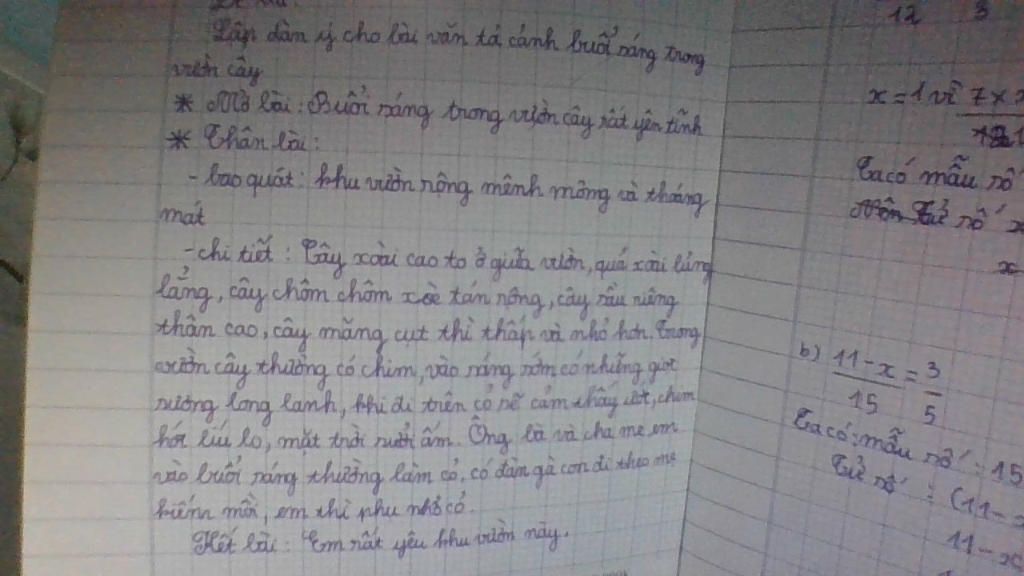 Đề bài:
Lập dàn ý cho bài văn tả cảnh buổi sáng trong
vườn cây
* Mở bài: Buổi sáng trong vườn cây rất yên tĩnh
* Thân bài:
- bao quát: khu vườn rộng mênh mông và thoáng
mát
- chi tiết: Cây xoài cao to ở giữa vườn, quả xoài lủng
lẳng, cây chôm chôm xòe tán rộng, cây sầu riêng
thân cao, cây măng cụt thì thấp và nhỏ hơn. Trong
vườn cây thường có chim, vào sáng sớm có những giọt
sương long lanh, khi đi trên cỏ sẽ cảm thấy ướt, chim
hót líu lo, mặt trời sưởi ấm. Ông bà và cha mẹ em
vào buổi sáng thường làm cỏ, có đàn gà con đi theo mẹ
kiếm mồi, em thì phụ nhổ cỏ.
Kết bài: Em rất yêu khu vườn này.
12 3
x = 1 vì 7 ×
Ta có mẫu số
Tử số
x
b) 11 - x = 3
15 5
Ta có: mẫu số : 15
Tử số : (11 -
11 - x